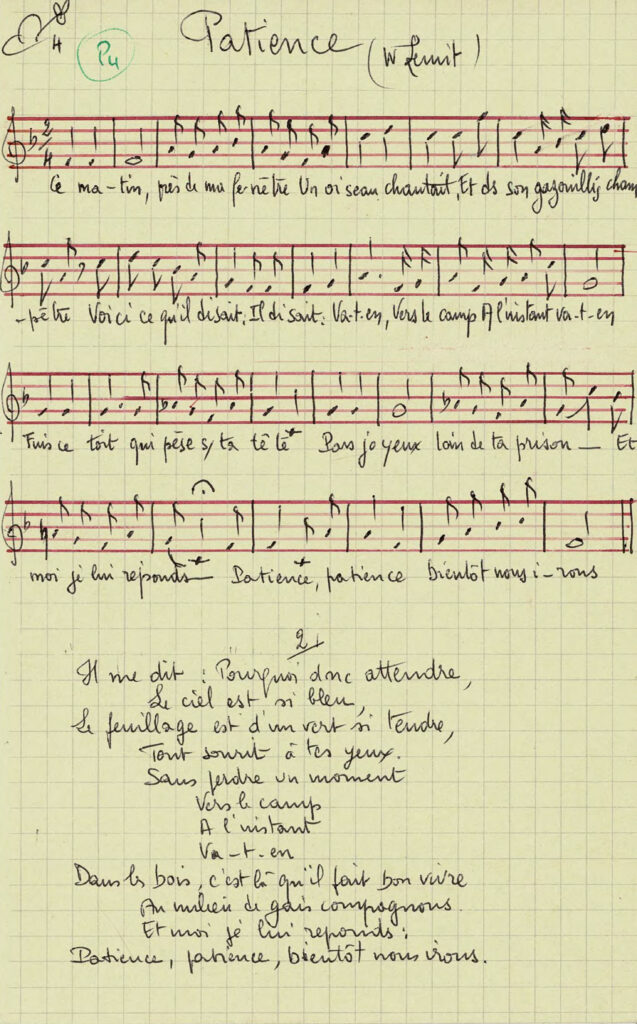 4
P4
Patience (W Lemit)
2
4
Ce ma-tin, près de ma fe-nêtre Un oiseau chantait, Et ds son gazouillis cham
-pêtre Voici ce qu'il disait: Il disait: Va-t-en, Vers le camp A l'instant va-t-en
Fuis ce toit qui pèse s/ ta tête Pars joyeux loin de ta prison — Et
moi je lui réponds — Patience, patience bientôt nous i-rons
2
Il me dit : Pourquoi donc attendre,
Le ciel est si bleu,
Le feuillage est d'un vert si tendre,
Tout sourit à tes yeux.
Sans perdre un moment
Vers le camp
A l'instant
Va-t-en
Dans les bois, c'est là qu'il fait bon vivre
Au milieu de gais compagnons.
Et moi je lui réponds :
Patience, patience, bientôt nous irons.